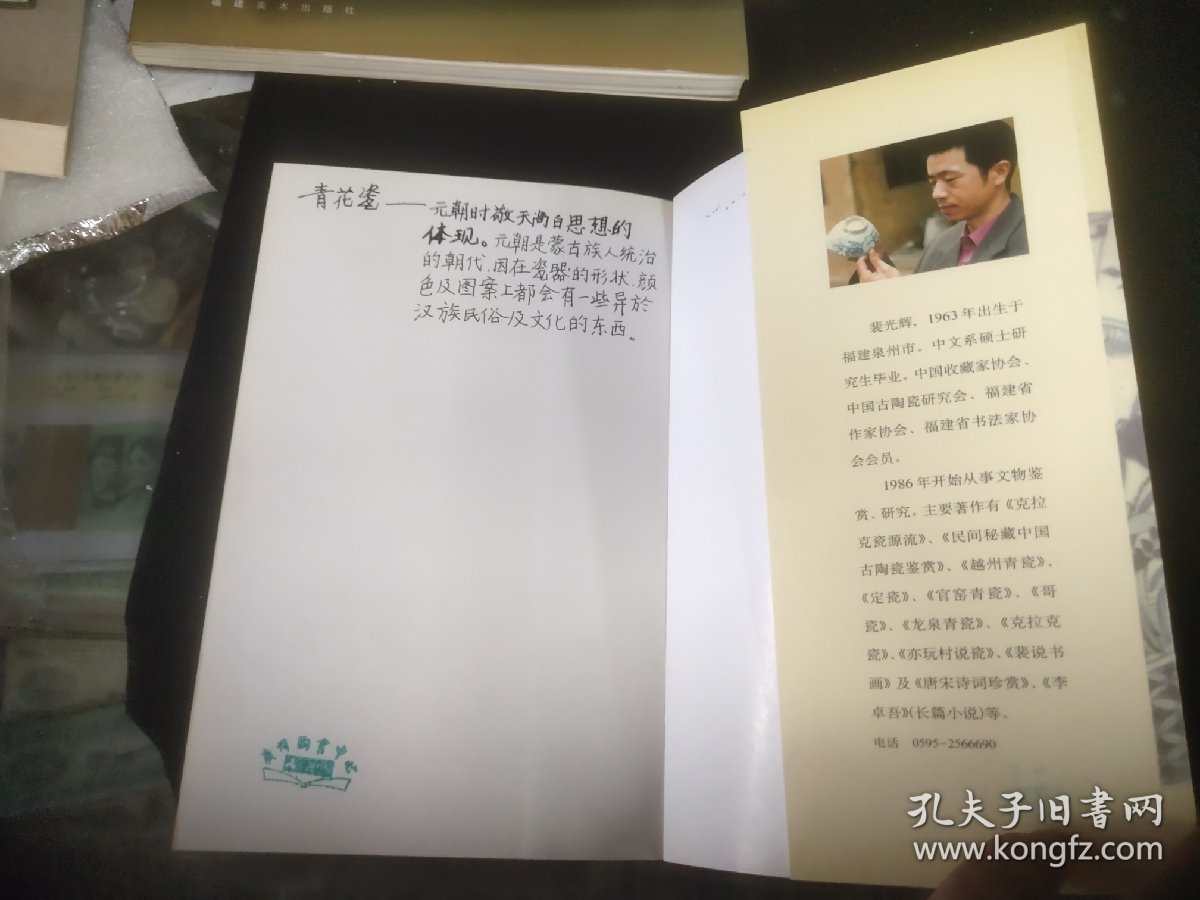 福建美术出版社
青花瓷——元朝时敬天尚白思想的
体现。元朝是蒙古族人统治
的朝代、因在瓷器的形状、颜
色及图案上都会有一些异於
汉族民俗及文化的东西。
裴光辉，1963年出生于
福建泉州市。中文系硕士研
究生毕业。中国收藏家协会、
中国古陶瓷研究会、福建省
作家协会、福建省书法家协
会会员。
1986年开始从事文物鉴
赏、研究。主要著作有《克拉
克瓷源流》、《民间秘藏中国
古陶瓷鉴赏》、《越州青瓷》、
《定瓷》、《官窑青瓷》、《哥
瓷》、《龙泉青瓷》、《克拉克
瓷》、《亦玩村说瓷》、《裴说书
画》及《唐宋诗词珍赏》、《李
卓吾》(长篇小说)等。
电话 0595-2566690
孔夫子旧书网
www.kongfz.com